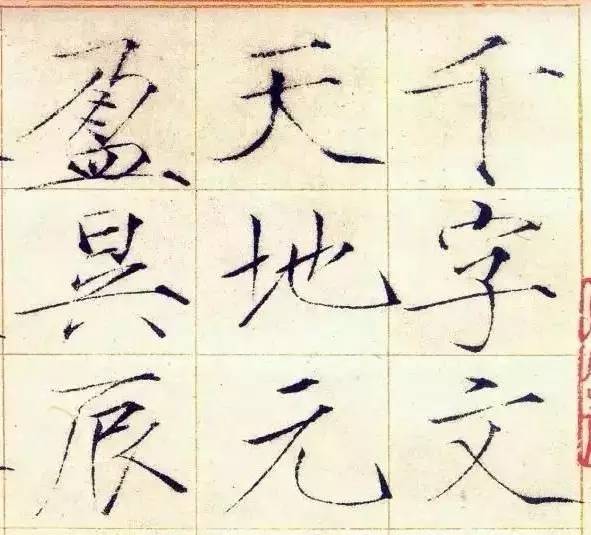 千字文
天地元
盈昃辰